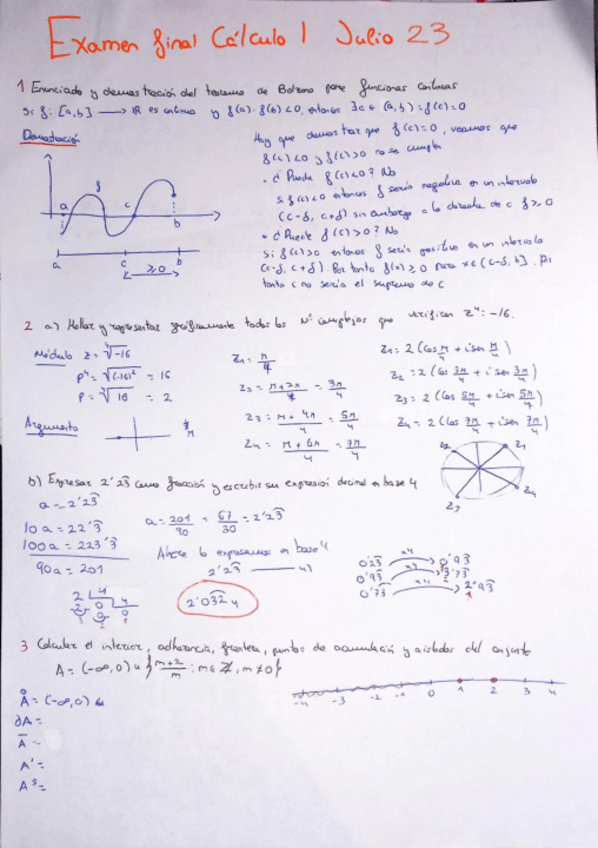 Examen final Cálculo 1 Julio 23
1 Enunciado y demostración del teorema de Bolzano para funciones continuas
Si f: [a,b] → IR es continua y f(a)·f(b)<0, entonces ∃c ∈ (a,b) : f(c)=0
Demostración
Hay que demostrar que f(c)=0, veamos que
f(c)<0 y f(c)>0 no se cumple
• ¿Puede f(c)<0? No
si f(c)<0 entonces f sería negativa en un intervalo
(c-δ, c+δ) sin embargo a la derecha de c f≥0
• ¿Puede f(c)>0? No
si f(c)>0 entonces f sería positiva en un intervalo
(c-δ, c+δ). Por tanto f(x)≥0 para x∈(c-δ, b]. Por
tanto c no sería el supremo de c
a f c b
a c b
≥0
2 a) Hallar y representar gráficamente todos los Nº complejos que verifican z⁴=-16.
Módulo z = ⁴√-16
ρ⁴ = √(-16)² = 16
ρ = ⁴√16 = 2
Argumento
z₁ = π/4
z₂ = π+2π/4 = 3π/4
z₃ = π+4π/4 = 5π/4
z₄ = π+6π/4 = 7π/4
z₁ = 2 (cos π/4 + i sen π/4)
z₂ = 2 (cos 3π/4 + i sen 3π/4)
z₃ = 2 (cos 5π/4 + i sen 5π/4)
z₄ = 2 (cos 7π/4 + i sen 7π/4)
z₂ z₁
z₃ z₄
b) Expresar 2'23̂ como fracción y escribir su expresión decimal en base 4
a = 2'23̂
10a = 22'3̂
100a = 223'3̂
90a = 201
a = 201/90 = 67/30 = 2'23̂
Ahora lo expresamos en base 4
2'23̂ 4)
2'032̂ 4
0'23̂ x4 0'93̂
0'93̂ x4 3'73̂
0'73̂ x4 2'93̂
3 Calcular el interior, adherencia, frontera, puntos de acumulación y aislados del conjunto
A = (-∞,0) ∪ {m+2/m : m∈Z, m≠0}
-4 -3 -2 -1 0 1 2 3 4
Å = (-∞,0)
∂A =
A̅ =
A' =
Aˢ =